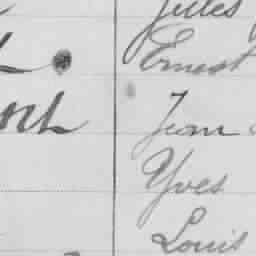 Jules
Ernest
Jean
Yves
Louis